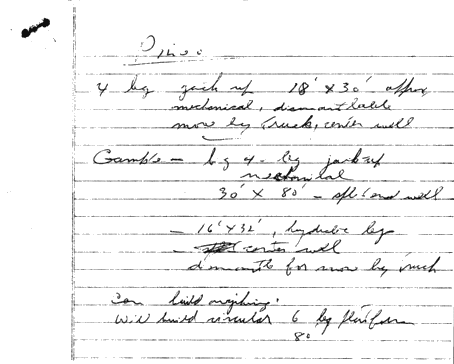 4 leg jack up 18' x 30' approx
mechanical, dismantleable
move by truck, center well
Gamble - big 4-leg jack up
mechanical
30' x 80' - end well
- 16' x 32', hydraulic leg
- center well
dismantle for move by truck
Can build anything.
Will build circular 6 leg platform
80